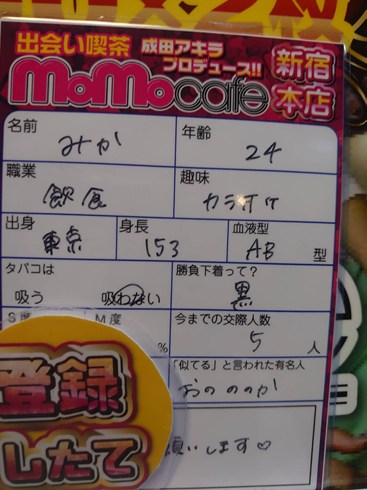 出会い喫茶 成田アキラ
プロデュース!!
MoMocafe
新宿
本店
名前 みか 年齢 24
職業 飲食 趣味 カラオケ
出身 東京 身長 153 血液型 AB 型
タバコは 吸う 吸わない
勝負下着って? 黒
S度 M度 %
今までの交際人数 5 人
「似てる」と言われた有名人
おのののか
願いします♡
登録
したて